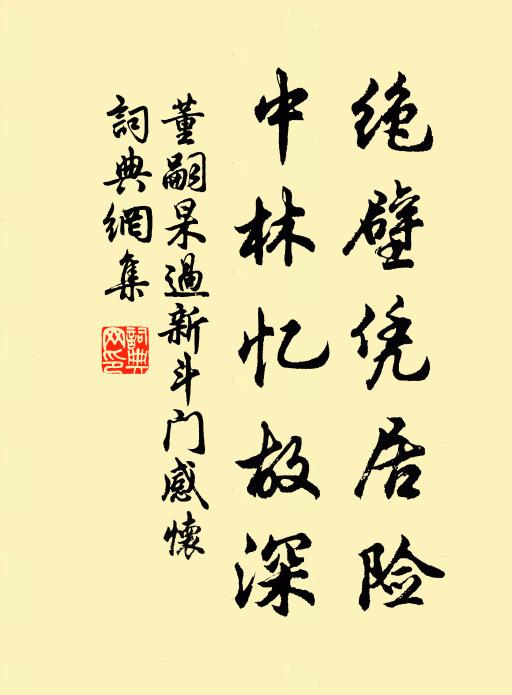 绝壁凭居险
中林忆故深
董嗣杲過新斗门感懷
詞典網集
詞典网印